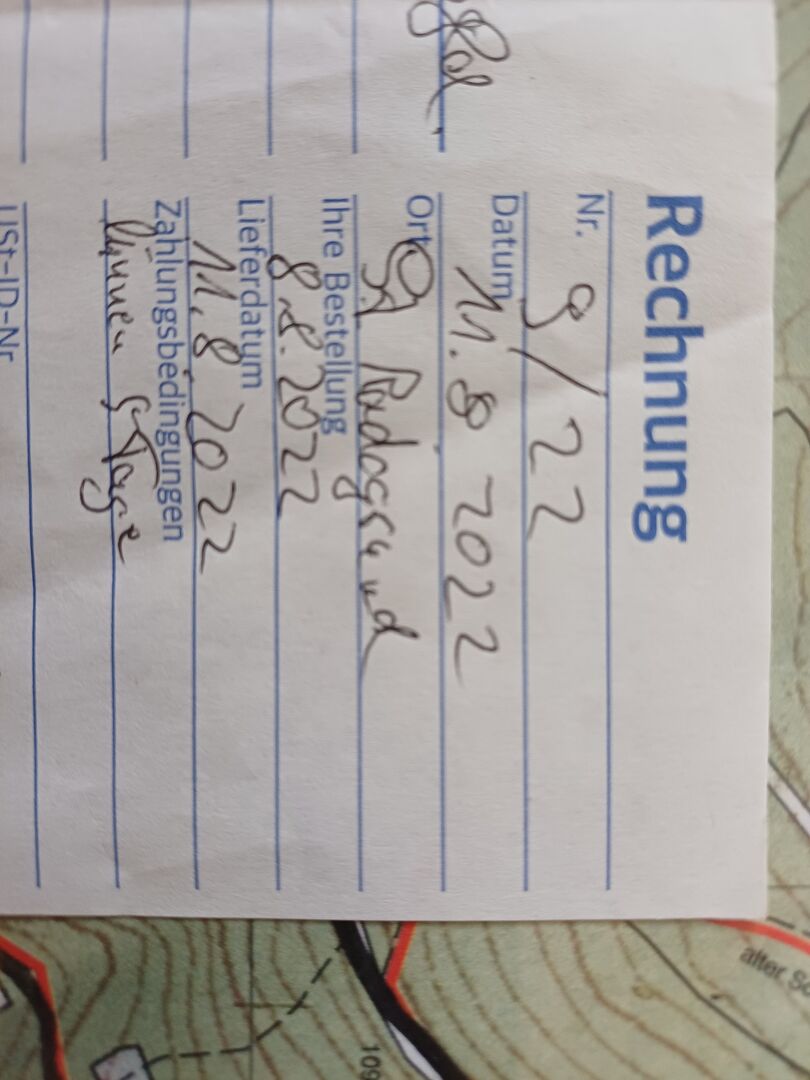 Rechnung
Nr. 9/22
Datum 11.8 2022
Ort St. Radegund
Ihre Bestellung
8.8.2022
Lieferdatum
11.8.2022
Zahlungsbedingungen
binnen 5 Tage
USt-ID-Nr
alter Sc
109